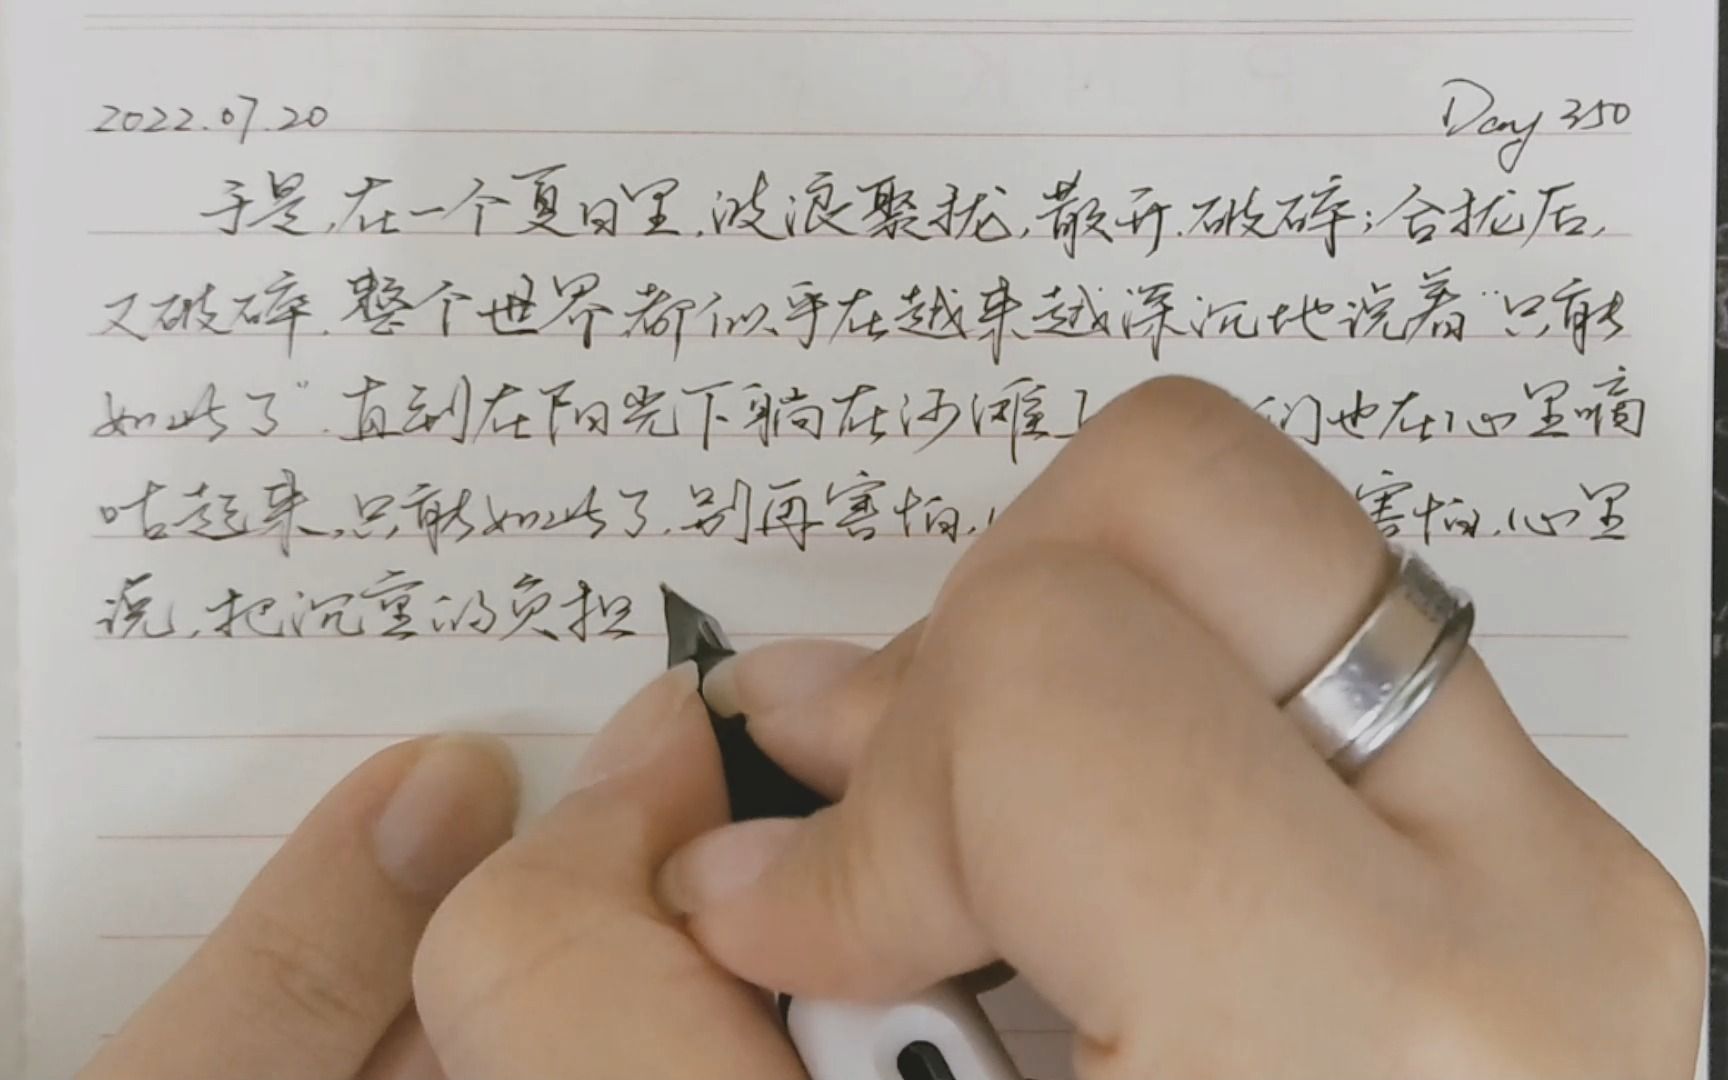 2022.07.20 Day 350
于是,在一个夏日里,波浪聚拢,散开,破碎;合拢后,
又破碎.整个世界都似乎在越来越深沉地说着“只能
如此了”.直到在阳光下躺在沙滩 们也在心里嘀
咕起来,只能如此了.别再害怕, 害怕,心里
说,把沉重的负担